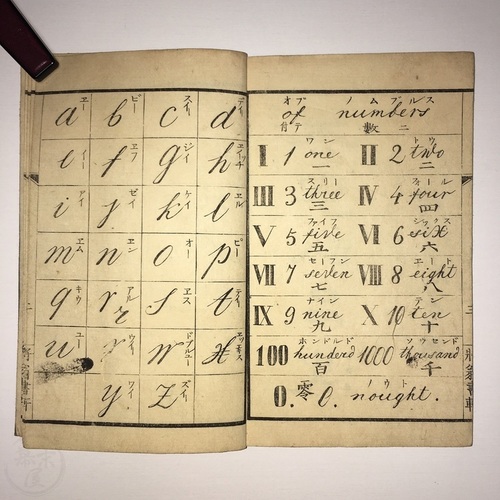 エー ビー スイ デイ
a b c d
イー エフ ジイ エーチ
e f g h
アイ ゼイ ケイ エル
i j k l
エム エン オー ピー
m n o p
キウ アル エス テイ
q r s t
ユー ドブルユー エッキス
u v w x
ワイ ズイ
y z
オブ ノムブルス
of numbers
数
ワン トウ
I 1 one 一 II 2 two 二
スリー フォール
III 3 three 三 IV 4 four 四
ファイフ シックス
V 5 five 五 VI 6 six 六
セーフン エート
VII 7 seven 七 VIII 8 eight 八
ナイン テン
IX 9 nine 九 X 10 ten 十
ホンドルド ソウセンド
100 hundred 百 1000 thousand 千
ノウト
0. 零 0. nought.